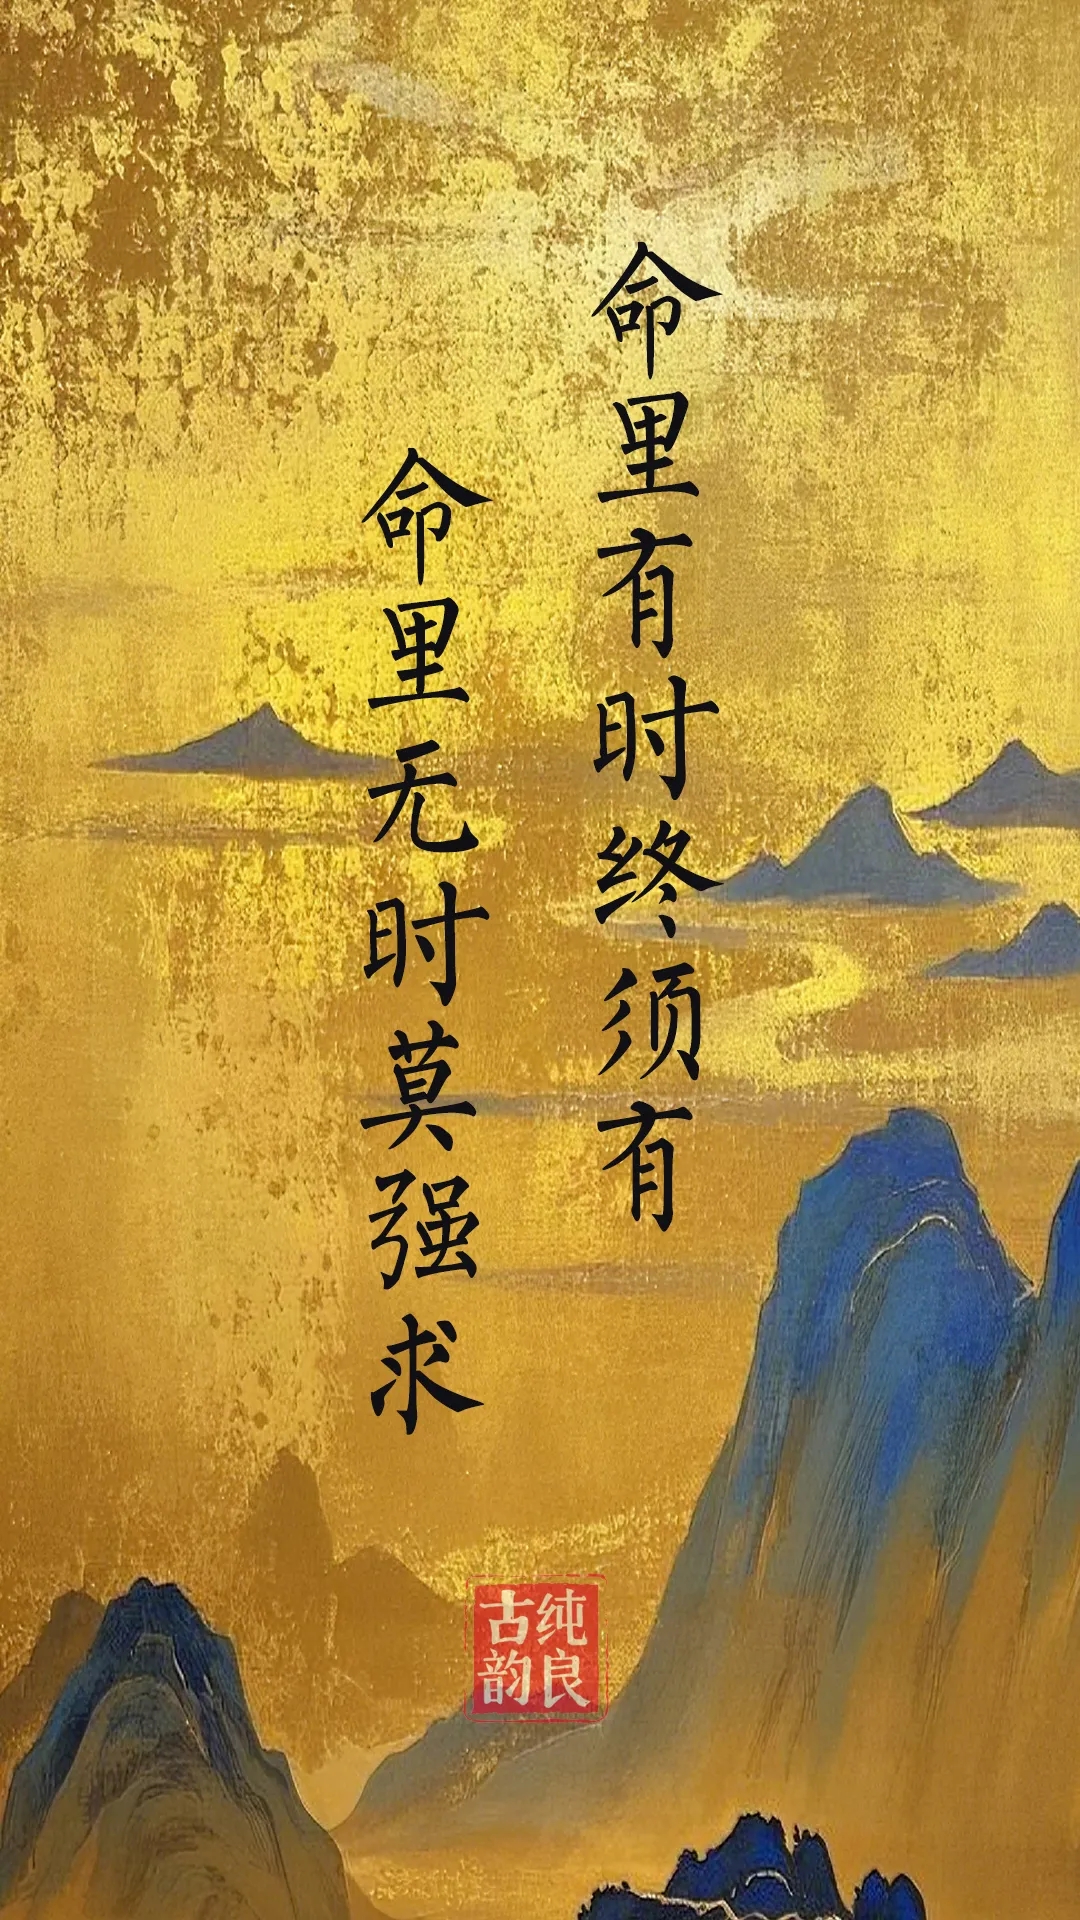 命里有时终须有
命里无时莫强求
纯良
古韵